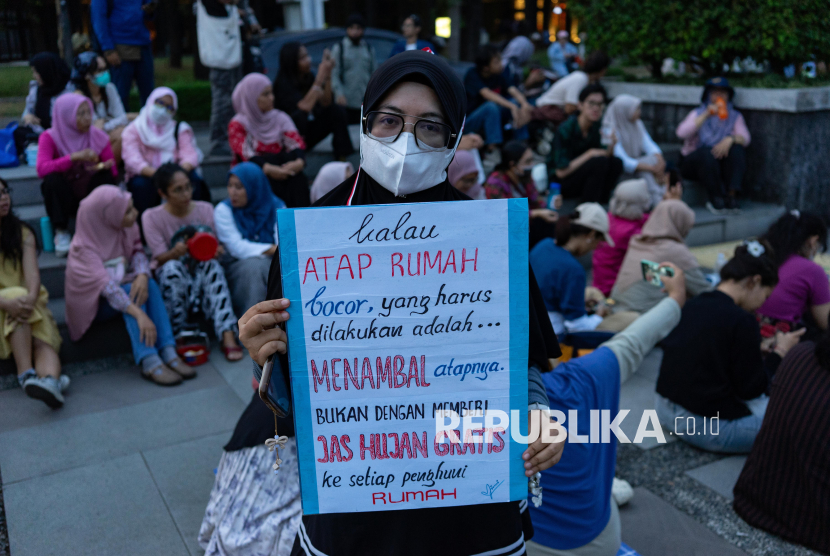 kalau
ATAP RUMAH
bocor, yang harus
dilakukan adalah...
MENAMBAL atapnya.
BUKAN DENGAN MEMBERI
JAS HUJAN GRATIS
ke setiap penghuni
RUMAH
REPUBLIKA.co.id